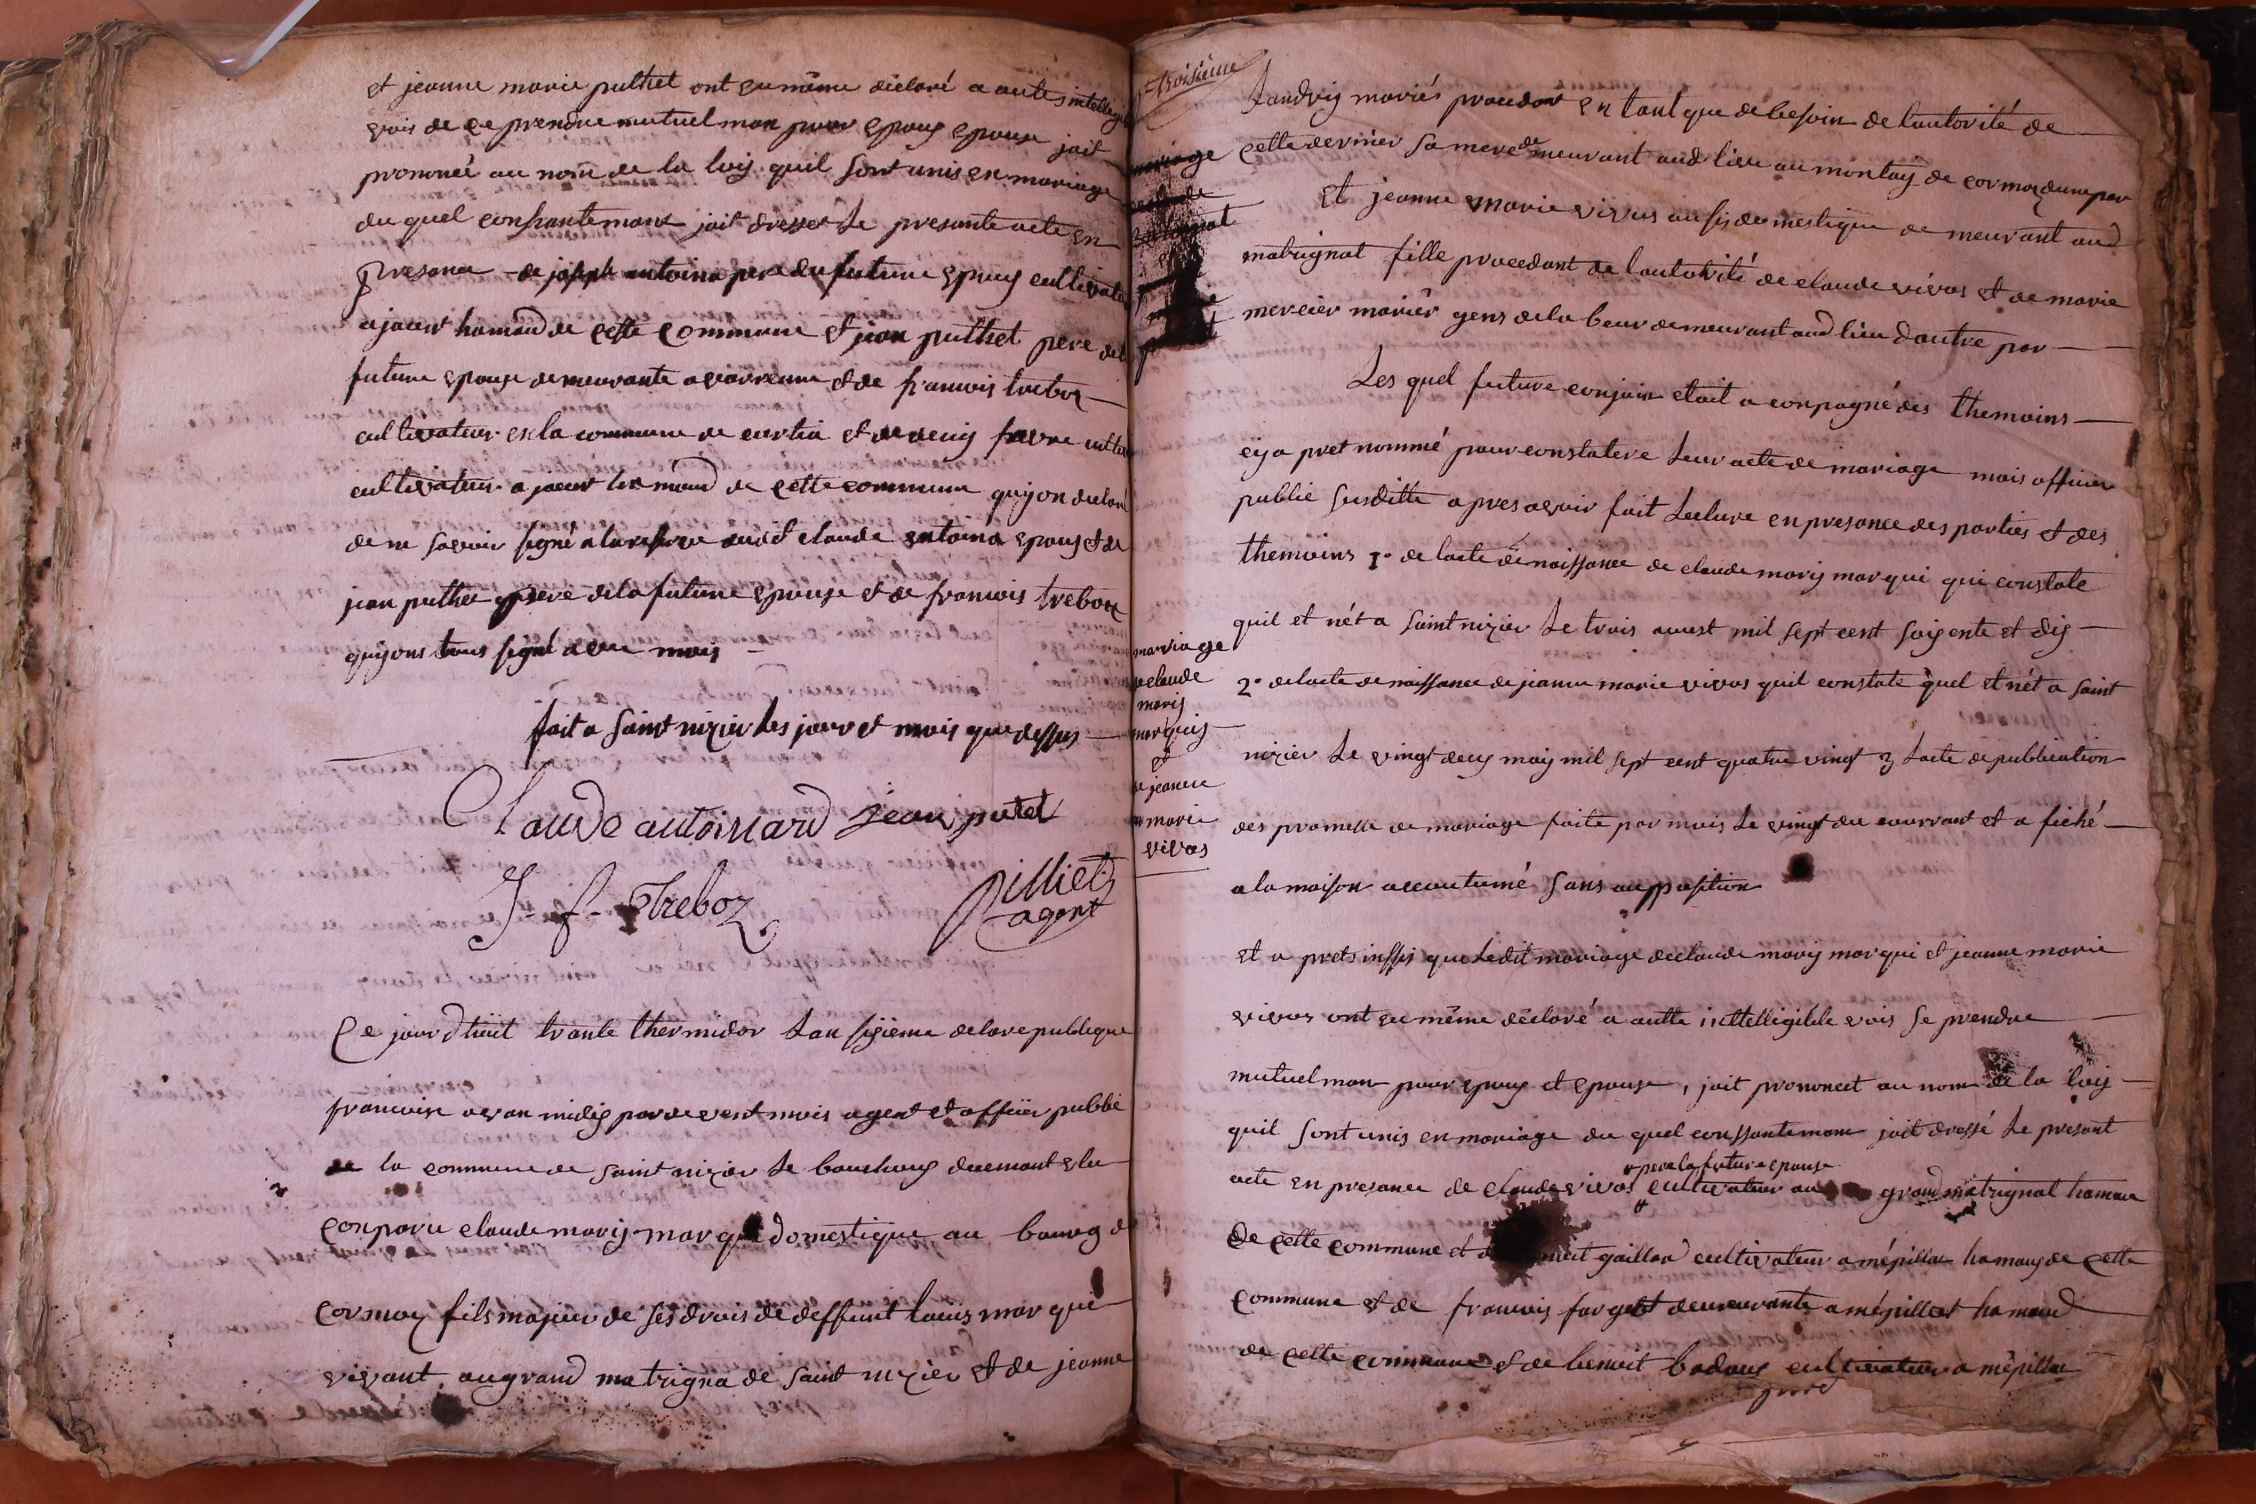 et jeanne marie puthet ont eu même déclaré a autes inttelligi
vois de ce prendre mutuelman pour epoux epouse jait
prononcé au nom de la loy quil sont unis en mariage
du quel conssantemant jait dresser le presante acte en
presance de joseph antoina pere du future epouy cultivate
ajaux hamaud de cette commune et jean puthet pere del
future epouse demeurante a varenne et de francois trebox
cultivateur en la commune de curtia et de denis favre
cultivateur a jaeur hamaud de cette commune quyon declaré
de ne savoir signé a la reserve dudt claude antoina epouy et de
jean puthet pere de la future epouse et de francois trebox
quyons tous signé avec mois
fait a saint nizier les jour et mois que dessus
Claude antoinard jean putet
J - f - Treboz
Pilliet
agent
Ce jourdhuit trante thermidor lan sixieme de la republique
francoise avan midy par devent mois agent et officier public
de la commune de saint nizier le bouchoux duemant elu
Conparu claude mary marqui domestique au bourg d
Cormoz fils majeur de ses drois de deffunt louis marqui
vivant au grand matrigna de saint nizier et de jeanne
Troisième
mariage
mariage
de claude
mary
marquis
et
de jeanne
marie
vivos
Landry mariés procedant en tant que de besoin de lautorité de
cette dernier sa mere demeurant aud lieu au montay de cormoz dune par
Et jeanne marie vivos aussy domestique demeurant aud
matrignat fille procedant de lautorité de claude vivos et de marie
mercier mariér gens de la beur demeurant aud lieu dautre par
Les quel future conjoin etait a conpagné des themoins
cy a pret nommé pour constatere leur acte de mariage mois officier
public susditte apres avoir fait lecture en presance des parties et des
themoins 1° de lacte de naissance de claude mary marqui qui constate
quil et nét a saint nizier le trois auust mil sept cent soisente et dis
2° de lacte de naissance de jeanne marie vivos quil constate quel et nét a saint
nizier le vingt deux may mil sept cent quatre vingt 3 lacte de publication
des promesse de mariage faite par mois le vingt du courrant et a fiché
a la maison accoutumé sans aupposition
et a prets inssis que ledit mariage de claude mary marqui et jeanne marie
vivos ont eu même déclaré a autte inttelligible vois se prendre
mutuelman pour epouy et epouse, jait prononcet au nom de la loy
quil sont unis en mariage du quel conssantemant jait drossé le presant
pere la future epouse
acte en presance de claude vivos cultivateur au grand matrignat hamau
de cette commune et gaillard cultivateur a mépillat hamaux de cette
commune et de francois fargett demeurante a mépillat hamaud
de cette commune et de benoit badoux cultivateur a mépillat